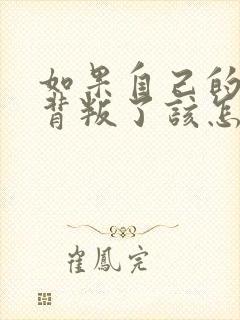 如果自己的
背叛了该怎
崔鳳完